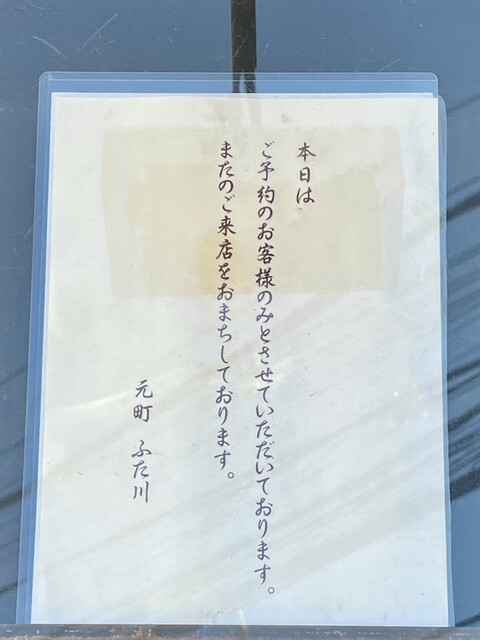 本日は
ご予約のお客様のみとさせていただいております。
またのご来店をおまちしております。
元町 ふた川